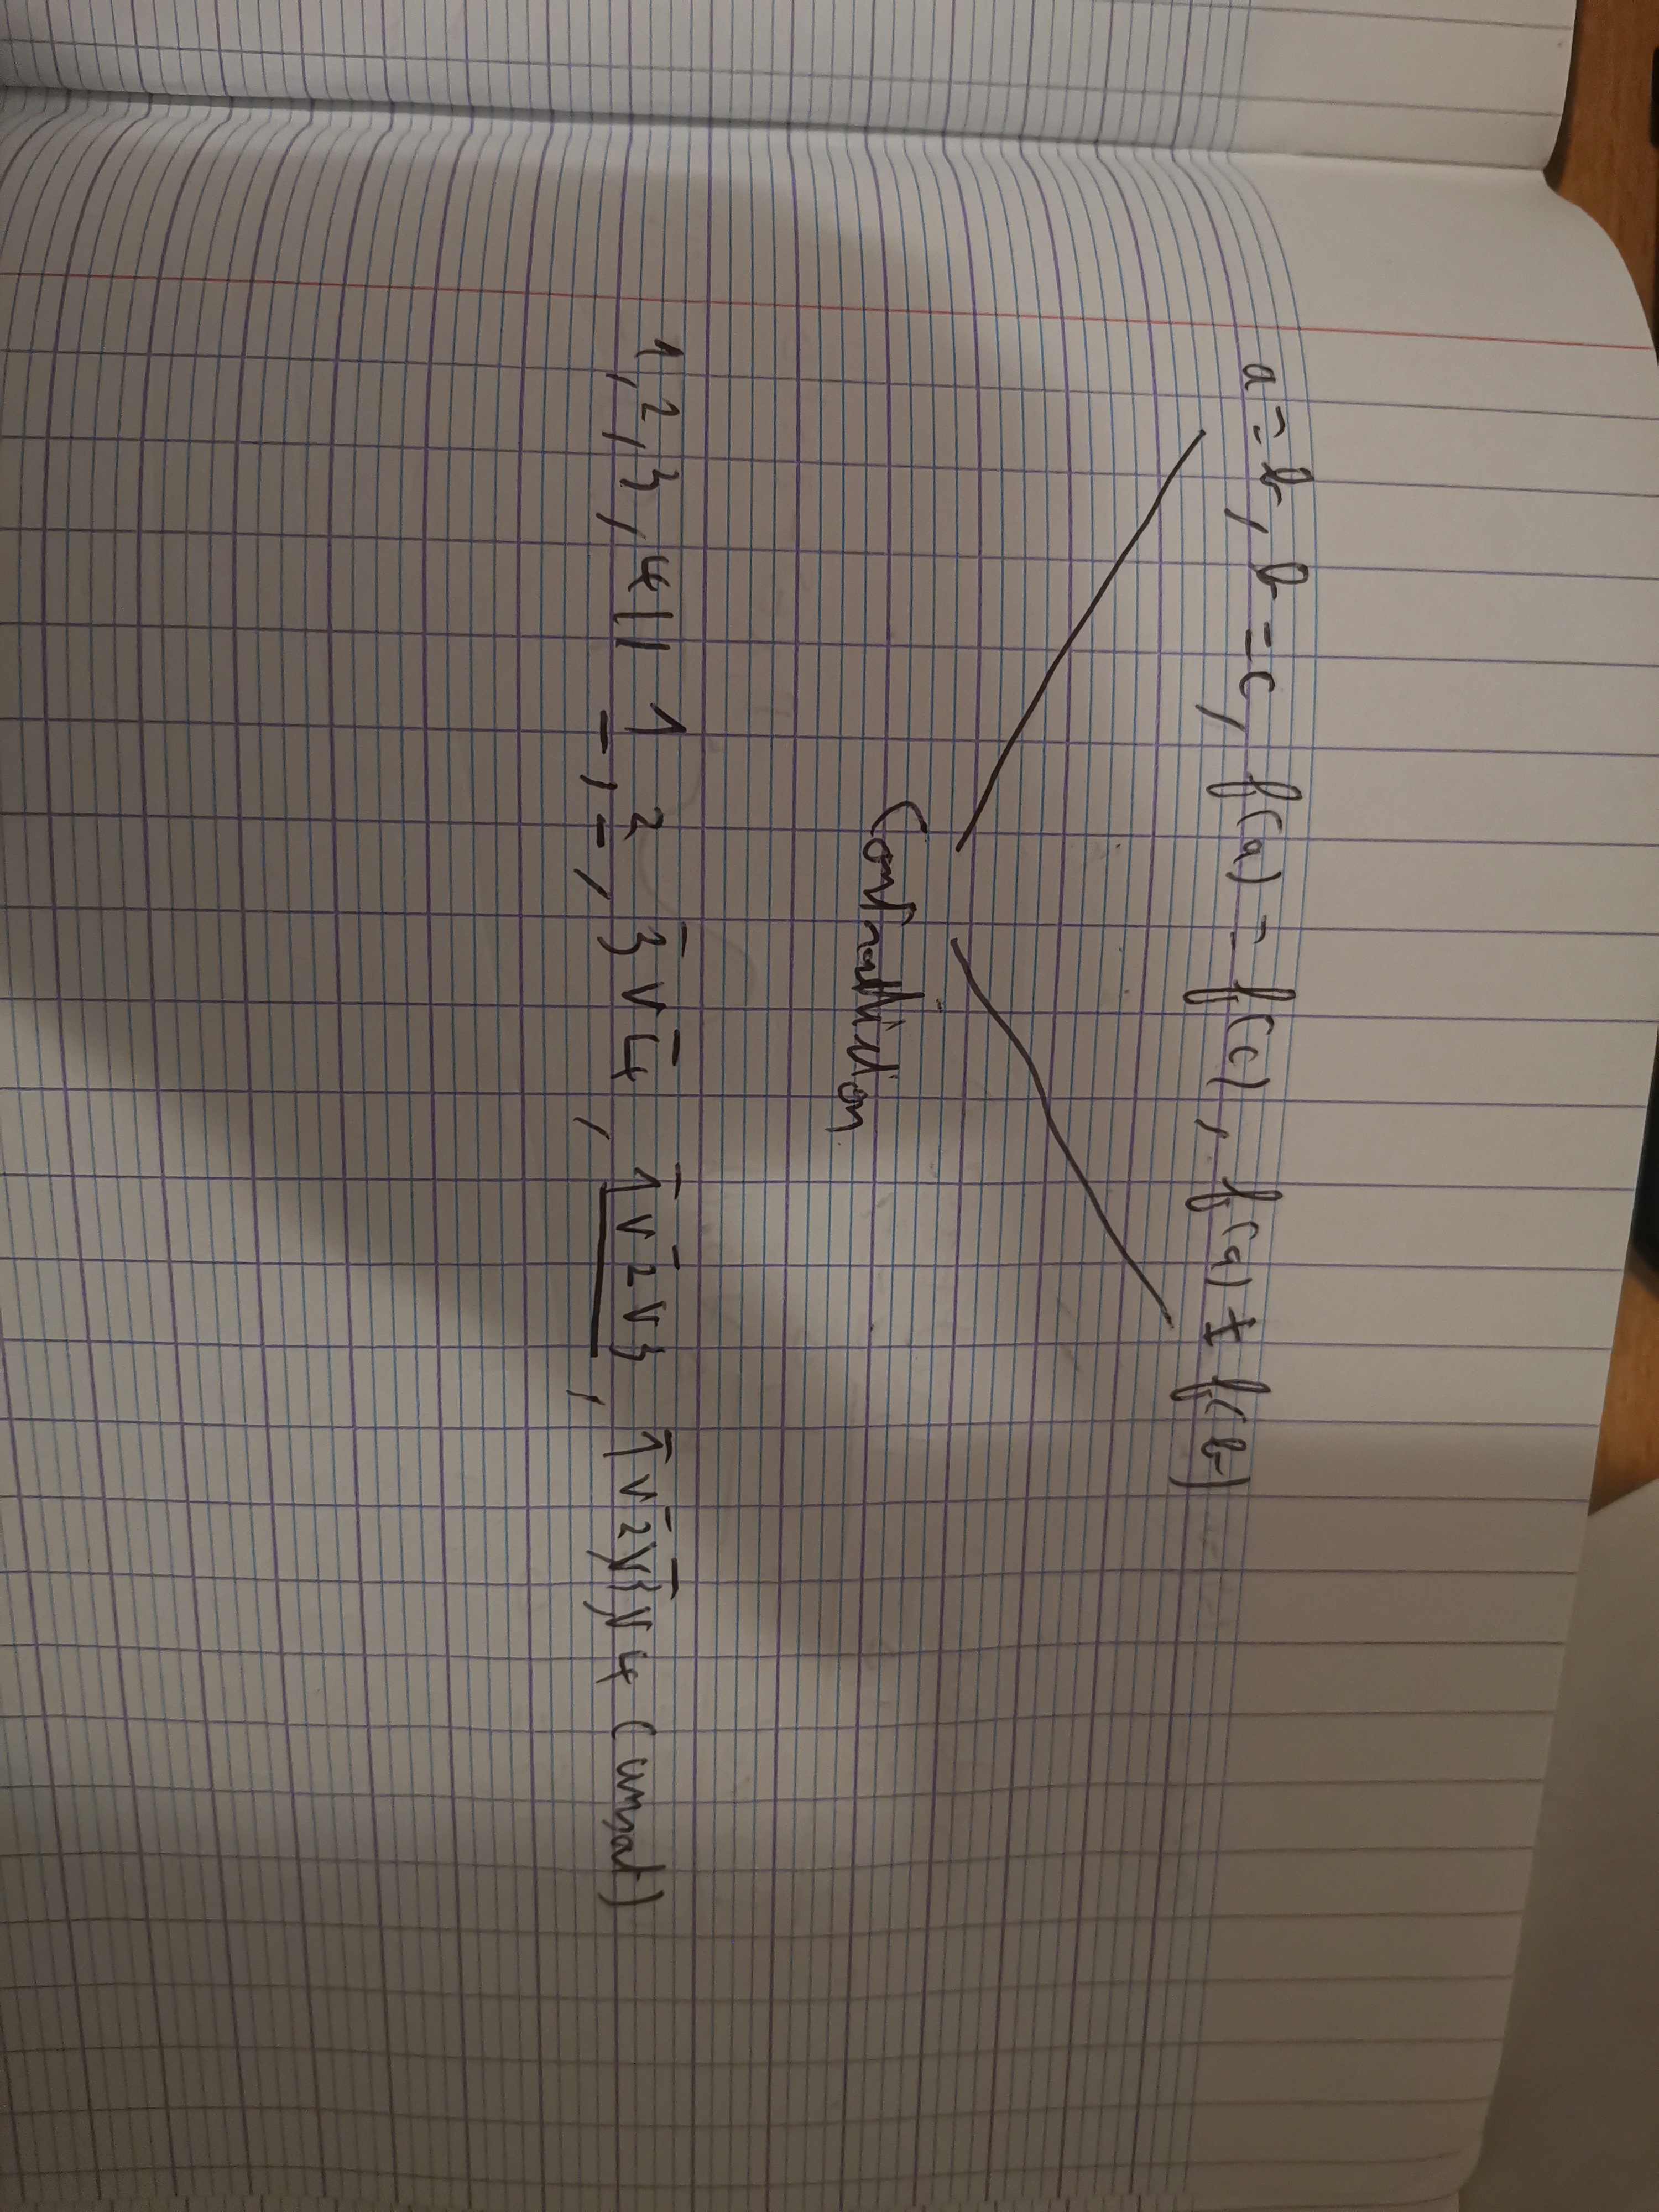 a = b, b = c, f(a) = f(c), f(a) ≠ f(b)
Contradiction
1, 2, 3, 4 || 1, 2, 3̄ ∨ 4̄, 1̄ ∨ 2̄ ∨ 3, 1̄ ∨ 2̄ ∨ 3̄ ∨ 4 (unsat)